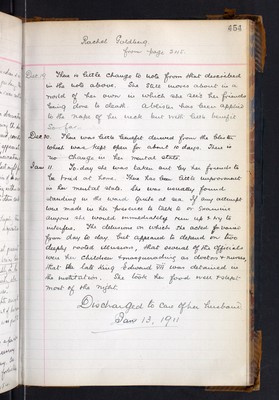 454
Rachel Goldberg
from page 245.
Dec 19 There is little change to note from that described
in the note above. She still moves about in a
world of her own in which she sees her friends
being done to death. A blister has been applied
to the nape of her neck but with little benefit
so far.
Dec 30. There was little benefit derived from the blister
which was kept open for about 10 days. There is
no change in her mental state.
Jan 11 To-day she was taken out by her friends to
be tried at home. There has been little improvement
in her mental state. She was usually found
standing in the ward quite at sea. If any attempt
were made in her presence to talk to or examine
anyone she would immediately run up & try to
interfere. The delusions on which she acted varied
from day to day but appeared to depend on two
deeply rooted illusions, that several of the officials
were her children masquerading as doctors & nurses,
that the late King Edward VII was detained in
the institution. She took her food well & slept
most of the night.
Discharged to care of her husband
Jan 13, 1911